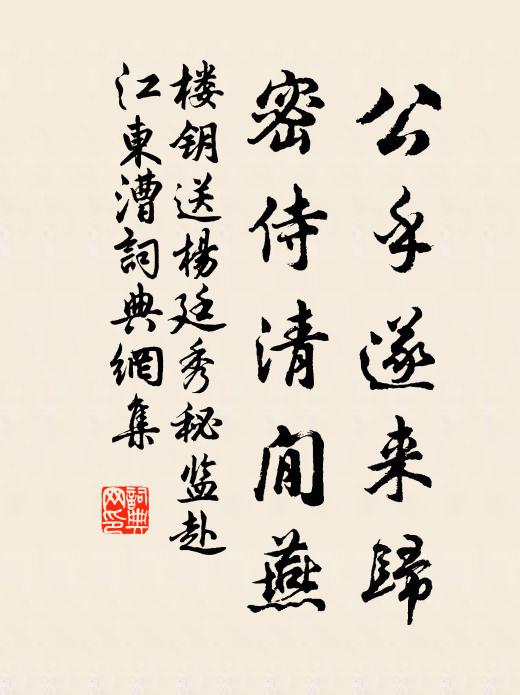 公乎遂来歸
密侍清间燕
楼钥送楊廷秀秘监赴
江東漕詞典網集
詞典网印